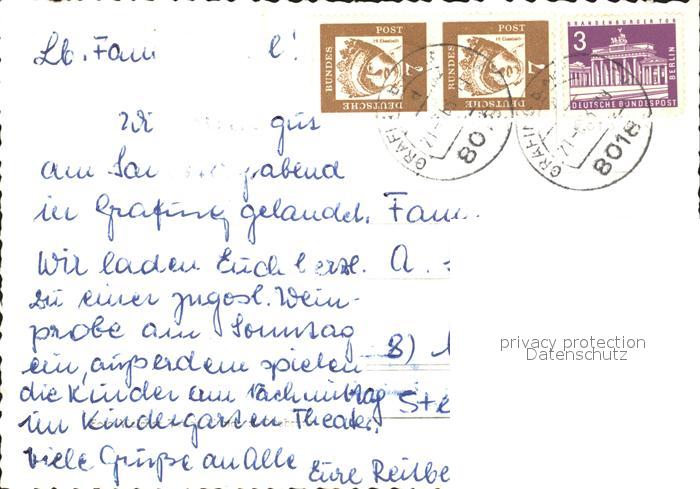 Lb. Fam
Wi gut
am Sa abend
in Grafing gelandet.
Wir laden Euch herzl.
zu einer jugosl. Wein-
probe am Sonntag
ein, außerdem spielen
die Kinder am Nachmittag
im Kindergarten Theater.
Viele Grüße an Alle
Eure Reitbe
BUNDES POST
Hl Elisabeth
7
DEUTSCHE
BUNDES POST
Hl Elisabeth
7
DEUTSCHE
BRANDENBURGER TOR
3
BERLIN
DEUTSCHE BUNDESPOST
GRAFIN
8018
GRAFIN
8018
Fam
A.
8)
Str
privacy protection
Datenschutz